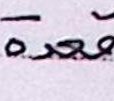 قعدة